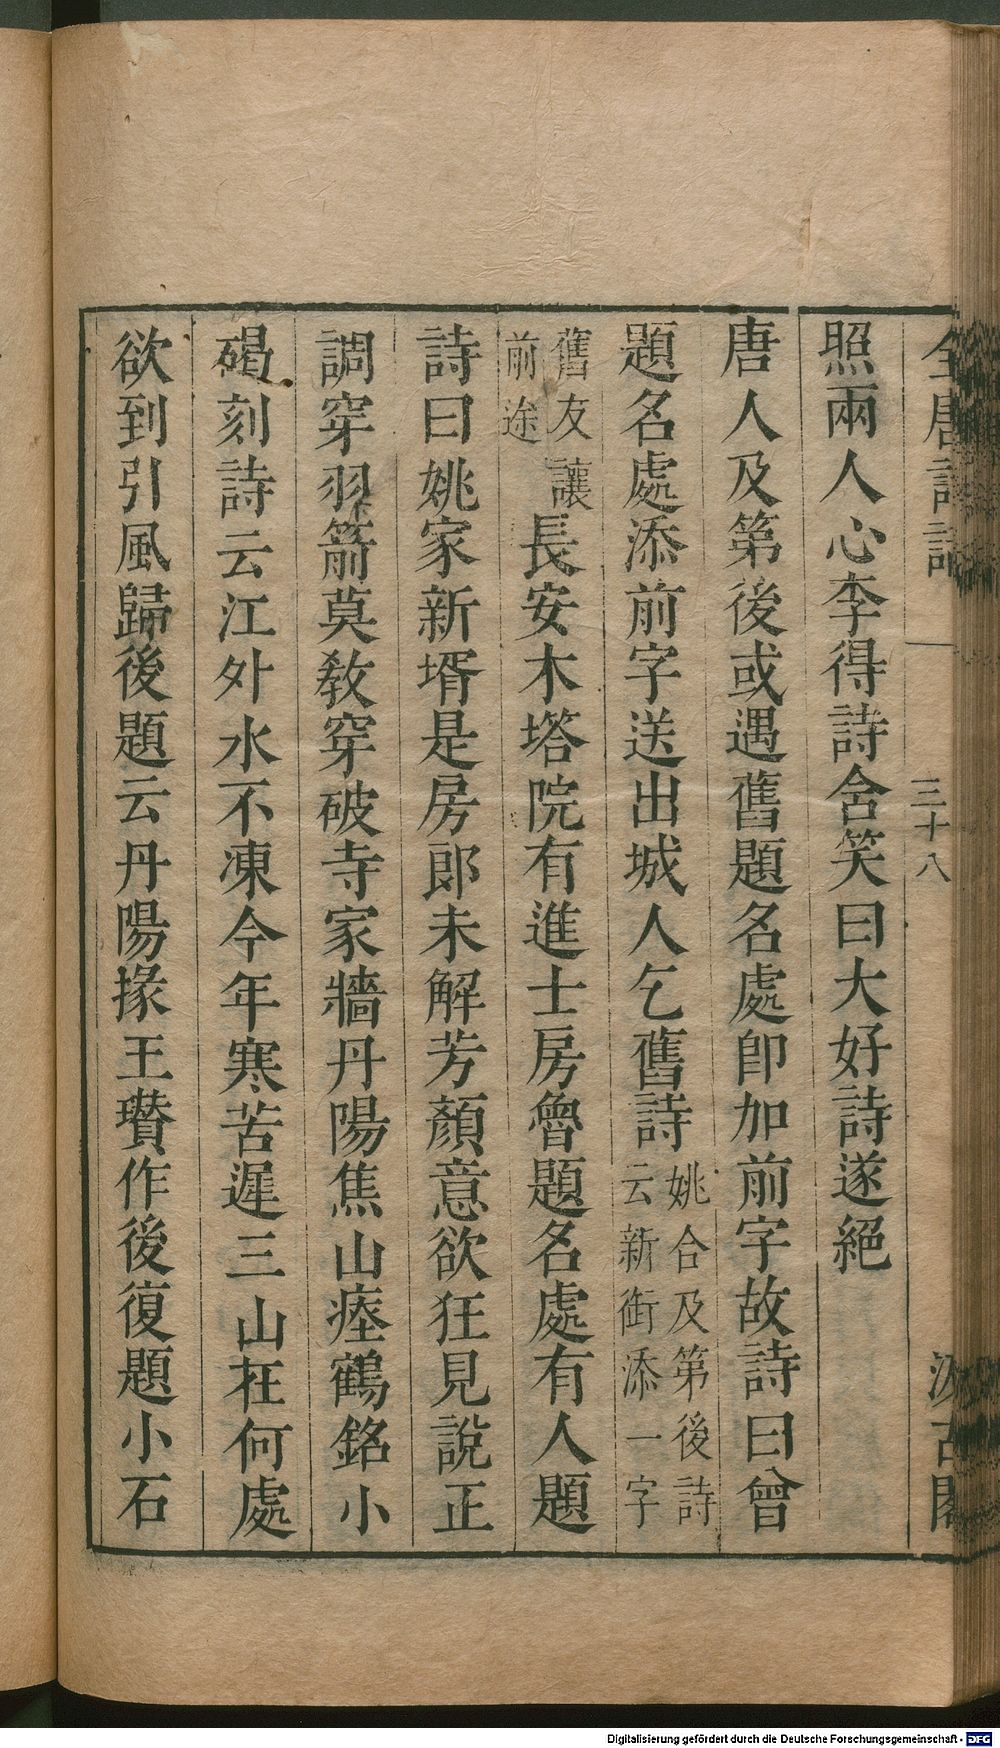 全唐詩話 三十八 汲古閣
照兩人心李得詩含笑曰大好詩遂絕
唐人及第後或遇舊題名處卽加前字故詩曰曾
題名處添前字送出城人乞舊詩姚合及第後詩云新銜添一字
舊友讓前途長安木塔院有進士房魯題名處有人題
詩曰姚家新壻是房郎未解芳顏意欲狂見說正
調穿羽箭莫敎穿破寺家牆丹陽焦山瘞鶴銘小
碣刻詩云江外水不凍今年寒苦遲三山在何處
欲到引風歸後題云丹陽掾王瓚作後復題小石
Digitalisierung gefördert durch die Deutsche Forschungsgemeinschaft - DFG